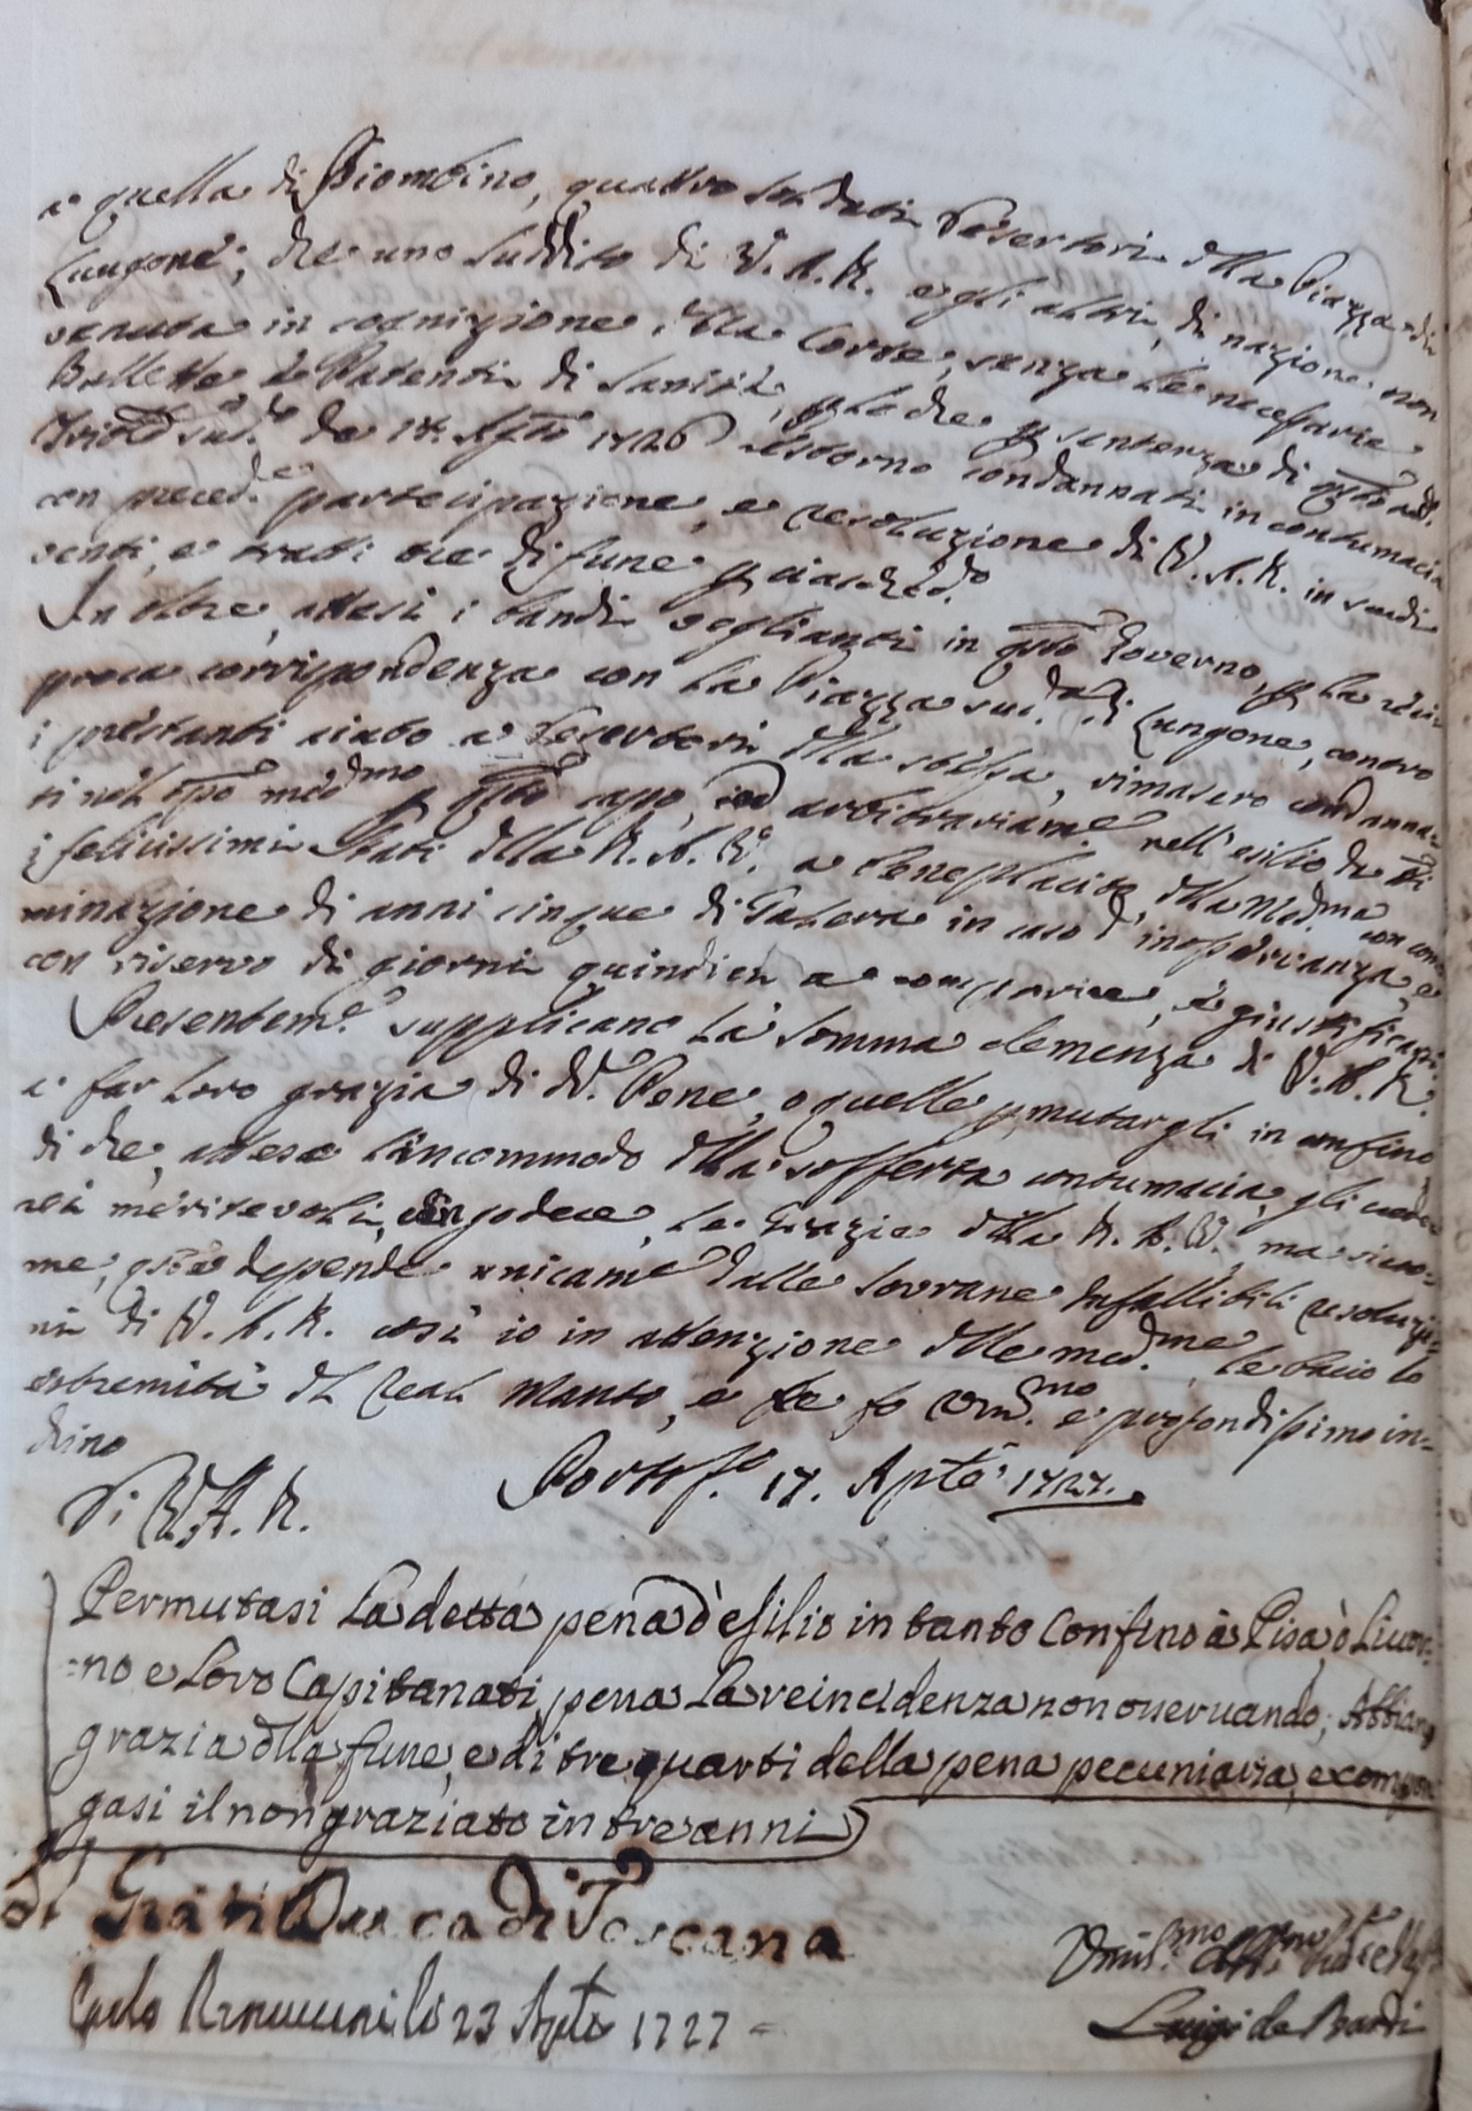 a quella di Piombino, quattro soldati desertori dlla Piazza di
Lungone, che uno suddito di V. A. R. e gli altri, di nazione non
venuta in cognizione dlla Corte, senza le necessarie
Bullette e Patenti di Sanità, p lo che p sentenza di qsto
de 18. Agsto 1726 restorno condannati in contumacia
con preced.e partecipazione, e resoluzione di V. A. R. in scudi
venti, e tratti tre di fune p ciasched.o
In oltre, attesi i bandi veglianti in qsto Governo, p la reci
proca corrispondenza con la Piazza sud.a di Lungone, contro
i prestanti aiuto a desertori dlla stessa, rimasero condanna=
ti nel tpo med.mo p qsto capo, arbitrariam.e nell' esilio da
i felicissimi Stati dlla R. A. V. a beneplacito dlla Med.ma con com
minazione di anni cinque di Galera in caso d' inosservanza, e
con riservo di giorni quindici a comparire, e giustificarsi.
Presentem.e supplicano la somma clemenza di V. A. R.
a far loro grazia di d.e Pene, o quelle pmutargli in confino
di che, attesa l'incommodo dlla sofferta contumacia, gli crede
rei meritevoli, godere, le Grazie dlla R. A. V. ma sicco=
me, qste depende unicam.e dalle sovrane infallibili resoluzio=
ni di V. A. R. così io in attenzione dlle med.me, le bacio lo
estremità dl Real Manto, e le fo um.mo e profondissimo in=
chino
Di V. A. R.
Portof.o 17. Agsto 1727.
Permutasi la detta pena d'esilio in tanto Confino à Pisa, ò Livor=
=no e loro Capitanati, pena la reincidenza non osservando; Abbiano
grazia dlla fune, e di tre quarti della pena pecuniaria, e compon
gasi il non graziato in tre anni
Il Gran Duca di Toscana
Carlo Rinuccini li 23 Agsto 1727 =
Umil.mo
Luigi de Bardi